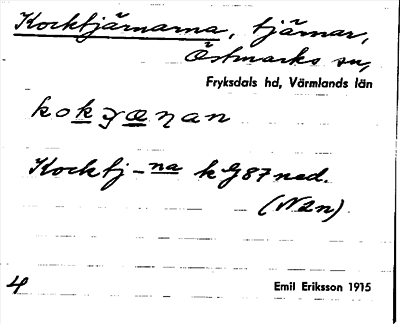 Kocktjärnarna, tjärnar,
Östmarks sn,
Fryksdals hd, Värmlands län
Kocktj-na kG87ned.
(N2n)
4
Emil Eriksson 1915